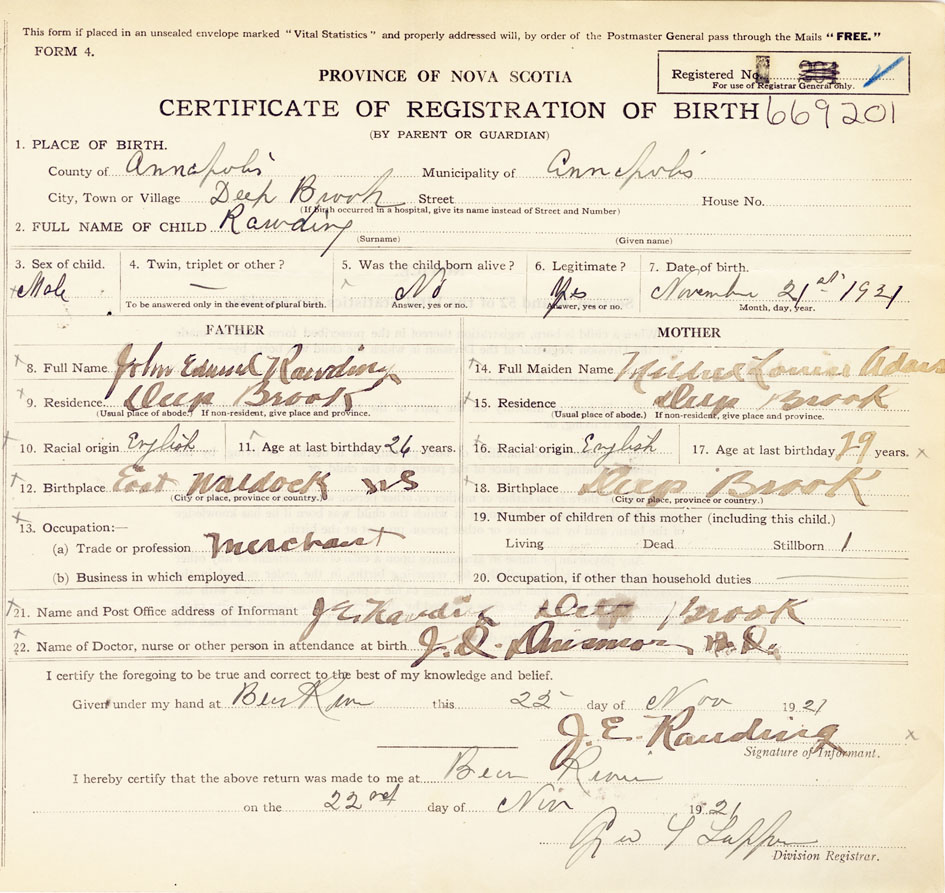 This form if placed in an unsealed envelope marked "Vital Statistics" and properly addressed will, by order of the Postmaster General pass through the Mails "FREE."
FORM 4.
PROVINCE OF NOVA SCOTIA
Registered No.
For use of Registrar General only.
CERTIFICATE OF REGISTRATION OF BIRTH 669201
(BY PARENT OR GUARDIAN)
1. PLACE OF BIRTH.
County of Annapolis Municipality of Annapolis
City, Town or Village Deep Brook Street House No.
(If birth occurred in a hospital, give its name instead of Street and Number)
2. FULL NAME OF CHILD Rawding
(Surname) (Given name)
3. Sex of child. 4. Twin, triplet or other? 5. Was the child born alive? 6. Legitimate? 7. Date of birth.
Male — No Yes November 21st 1921
To be answered only in the event of plural birth. Answer, yes or no. Answer, yes or no. Month, day, year.
FATHER MOTHER
8. Full Name John Edward Rawding 14. Full Maiden Name Mildred Louise Adams
9. Residence Deep Brook 15. Residence Deep Brook
(Usual place of abode.) If non-resident, give place and province. (Usual place of abode.) If non-resident, give place and province.
10. Racial origin English 11. Age at last birthday 26 years. 16. Racial origin English 17. Age at last birthday 19 years.
12. Birthplace East Waldock NS 18. Birthplace Deep Brook
(City or place, province or country.) (City or place, province or country.)
13. Occupation:— 19. Number of children of this mother (including this child.)
(a) Trade or profession Merchant Living Dead Stillborn 1
(b) Business in which employed 20. Occupation, if other than household duties
21. Name and Post Office address of Informant J E Rawding Deep Brook
22. Name of Doctor, nurse or other person in attendance at birth J. D. M.D.
I certify the foregoing to be true and correct to the best of my knowledge and belief.
Given under my hand at Bear River this 22 day of Nov 1921
J. E. Rawding
Signature of Informant.
I hereby certify that the above return was made to me at Bear River
on the 22nd day of Nov 1921
Geo
Division Registrar.